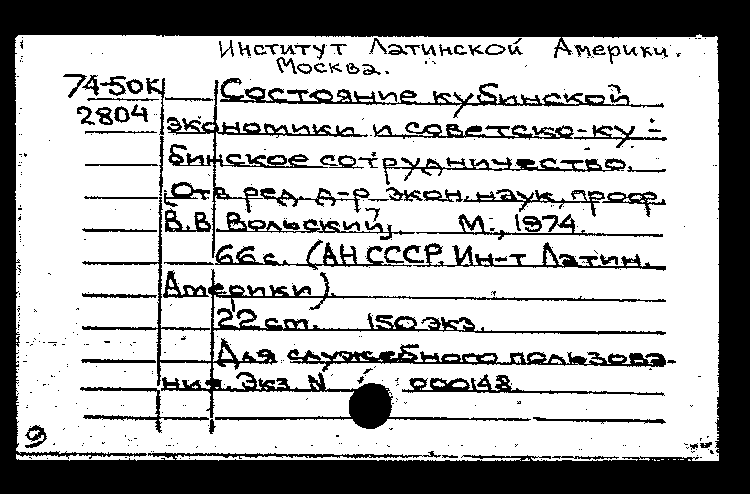 Институт Латинской Америки.
Москва.
74-50К Состояние кубинской
2804 экономики и советско-ку-
бинское сотрудничество.
[Отв. ред. д-р экон. наук, проф.
В.В. Вольский]. М., 1974.
66 с. (АН СССР. Ин-т Латин.
Америки).
22 см. 150 экз.
Для служебного пользова-
ния. Экз. N 000148.
9